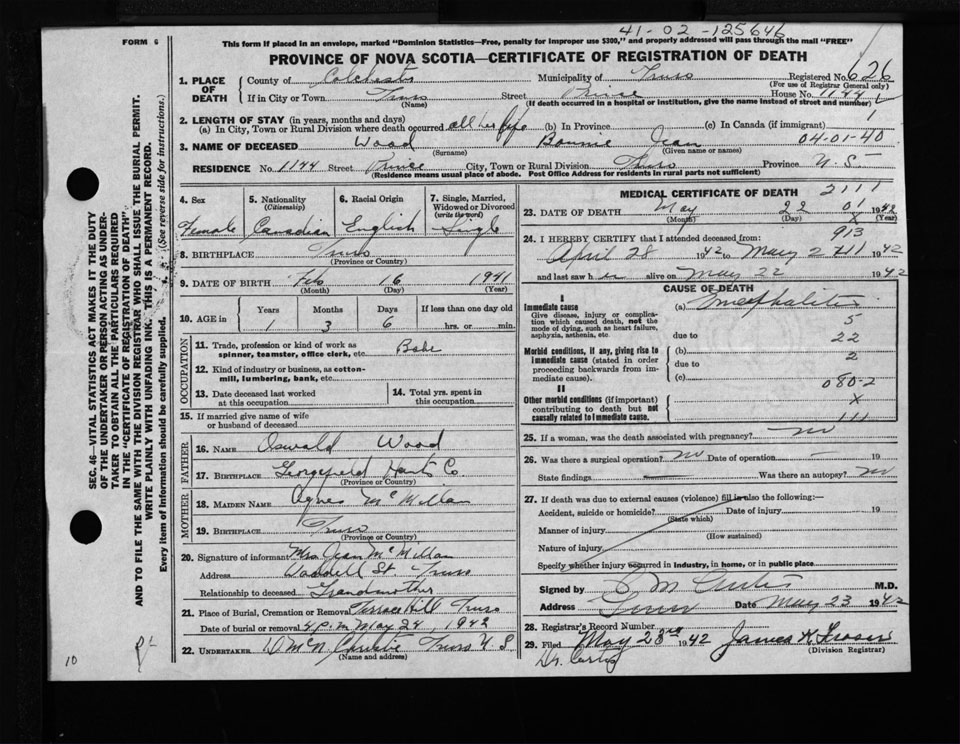 41-02-125646
FORM 6
This form if placed in an envelope, marked "Dominion Statistics—Free, penalty for improper use $300," and properly addressed will pass through the mail "FREE"
PROVINCE OF NOVA SCOTIA—CERTIFICATE OF REGISTRATION OF DEATH
1. PLACE OF DEATH County of Colchester Municipality of Truro Registered No. 626
(For use of Registrar General only)
If in City or Town Truro Street Prince House No. 1144
(Name) (If death occurred in a hospital or institution, give the name instead of street and number)
2. LENGTH OF STAY (in years, months and days)
(a) In City, Town or Rural Division where death occurred all her life (b) In Province (c) In Canada (if immigrant) 1
3. NAME OF DECEASED Wood Bonnie Jean 04-01-40
(Surname) (Given name or names)
RESIDENCE No. 1144 Street Prince City, Town or Rural Division Truro Province N.S.
(Residence means usual place of abode. Post Office Address for residents in rural parts not sufficient)
SEC. 46—VITAL STATISTICS ACT MAKES IT THE DUTY
OF THE UNDERTAKER OR PERSON ACTING AS UNDER-
TAKER TO OBTAIN ALL THE PARTICULARS REQUIRED
IN THE "CERTIFICATE OF REGISTRATION OF DEATH"
AND TO FILE THE SAME WITH THE DIVISION REGISTRAR WHO SHALL ISSUE THE BURIAL PERMIT.
WRITE PLAINLY WITH UNFADING INK. THIS IS A PERMANENT RECORD.
Every item of Information should be carefully supplied. (See reverse side for instructions.)
4. Sex 5. Nationality (Citizenship) 6. Racial Origin 7. Single, Married, Widowed or Divorced (write the word)
Female Canadian English Single
8. BIRTHPLACE Truro
(Province or Country)
9. DATE OF BIRTH Feb 16 1941
(Month) (Day) (Year)
10. AGE in Years Months Days If less than one day old
1 3 6 hrs. or min.
OCCUPATION
11. Trade, profession or kind of work as spinner, teamster, office clerk, etc. Babe
12. Kind of industry or business, as cotton-mill, lumbering, bank, etc.
13. Date deceased last worked at this occupation 14. Total yrs. spent in this occupation
15. If married give name of wife or husband of deceased
FATHER
16. NAME Oswald Wood
17. BIRTHPLACE Gorgefield Hants Co.
(Province or Country)
MOTHER
18. MAIDEN NAME Agnes McMillan
19. BIRTHPLACE Truro
(Province or Country)
20. Signature of informant Mrs Jean McMillan
Address Waddell St. Truro
Relationship to deceased Grandmother
21. Place of Burial, Cremation or Removal Terrace Hill Truro
Date of burial or removal 4 P.m May 24, 1942
22. UNDERTAKER D McN Christie Truro N S
(Name and address)
10
MEDICAL CERTIFICATE OF DEATH 2111
23. DATE OF DEATH May 22 01 1942
(Month) (Day) (Year)
24. I HEREBY CERTIFY that I attended deceased from: 913
April 28 1942 to May 2 1942
and last saw h alive on May 22 1942
CAUSE OF DEATH
I
Immediate cause (a) Encephalitis
Give disease, injury or complication which caused death, not the mode of dying, such as heart failure, asphyxia, asthenia, etc. 5
due to 22
Morbid conditions, if any, giving rise to immediate cause (stated in order proceeding backwards from immediate cause). (b) 2
due to
(c) 080-2
II
Other morbid conditions (if important) contributing to death but not causally related to immediate cause. X
111
25. If a woman, was the death associated with pregnancy? no
26. Was there a surgical operation? no Date of operation — 19
State findings — Was there an autopsy? no
27. If death was due to external causes (violence) fill in also the following:—
Accident, suicide or homicide? Date of injury 19
(State which)
Manner of injury
(How sustained)
Nature of injury
Specify whether injury occurred in industry, in home, or in public place
Signed by S M Curtis M.D.
Address Truro Date May 23 1942
28. Registrar's Record Number
29. Filed May 23rd 1942 James K Fraser
(Division Registrar)
Dr. Curtis